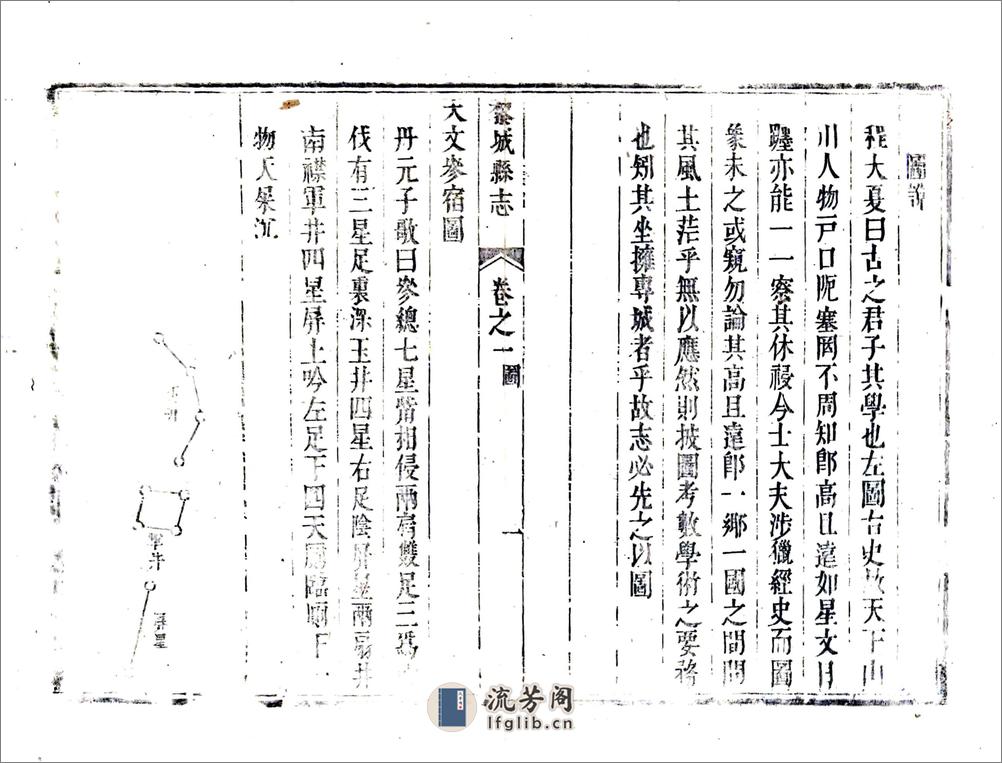 圖說
程大夏曰古之君子其學也左圖右史故天下山
川人物戸口阨塞罔不周知卽高且遠如星文日
躔亦能一一察其休祲今士大夫涉獵經史而圖
象未之或窺勿論其高且遠卽一鄉一國之間問
其風土茫乎無以應然則披圖考數學術之要務
也矧其坐擁專城者乎故志必先之以圖
黎城縣志
卷之一
圖
一
天文參宿圖
丹元子歌曰參總七星觜相侵兩肩雙足三爲
伐有三星足裏深玉井四星右足陰屏星兩扇井
南襟軍井四星屏上吟左足下四天厠臨厠下
物天屎沉
軍井
屏星
流芳阁
lfglib.cn